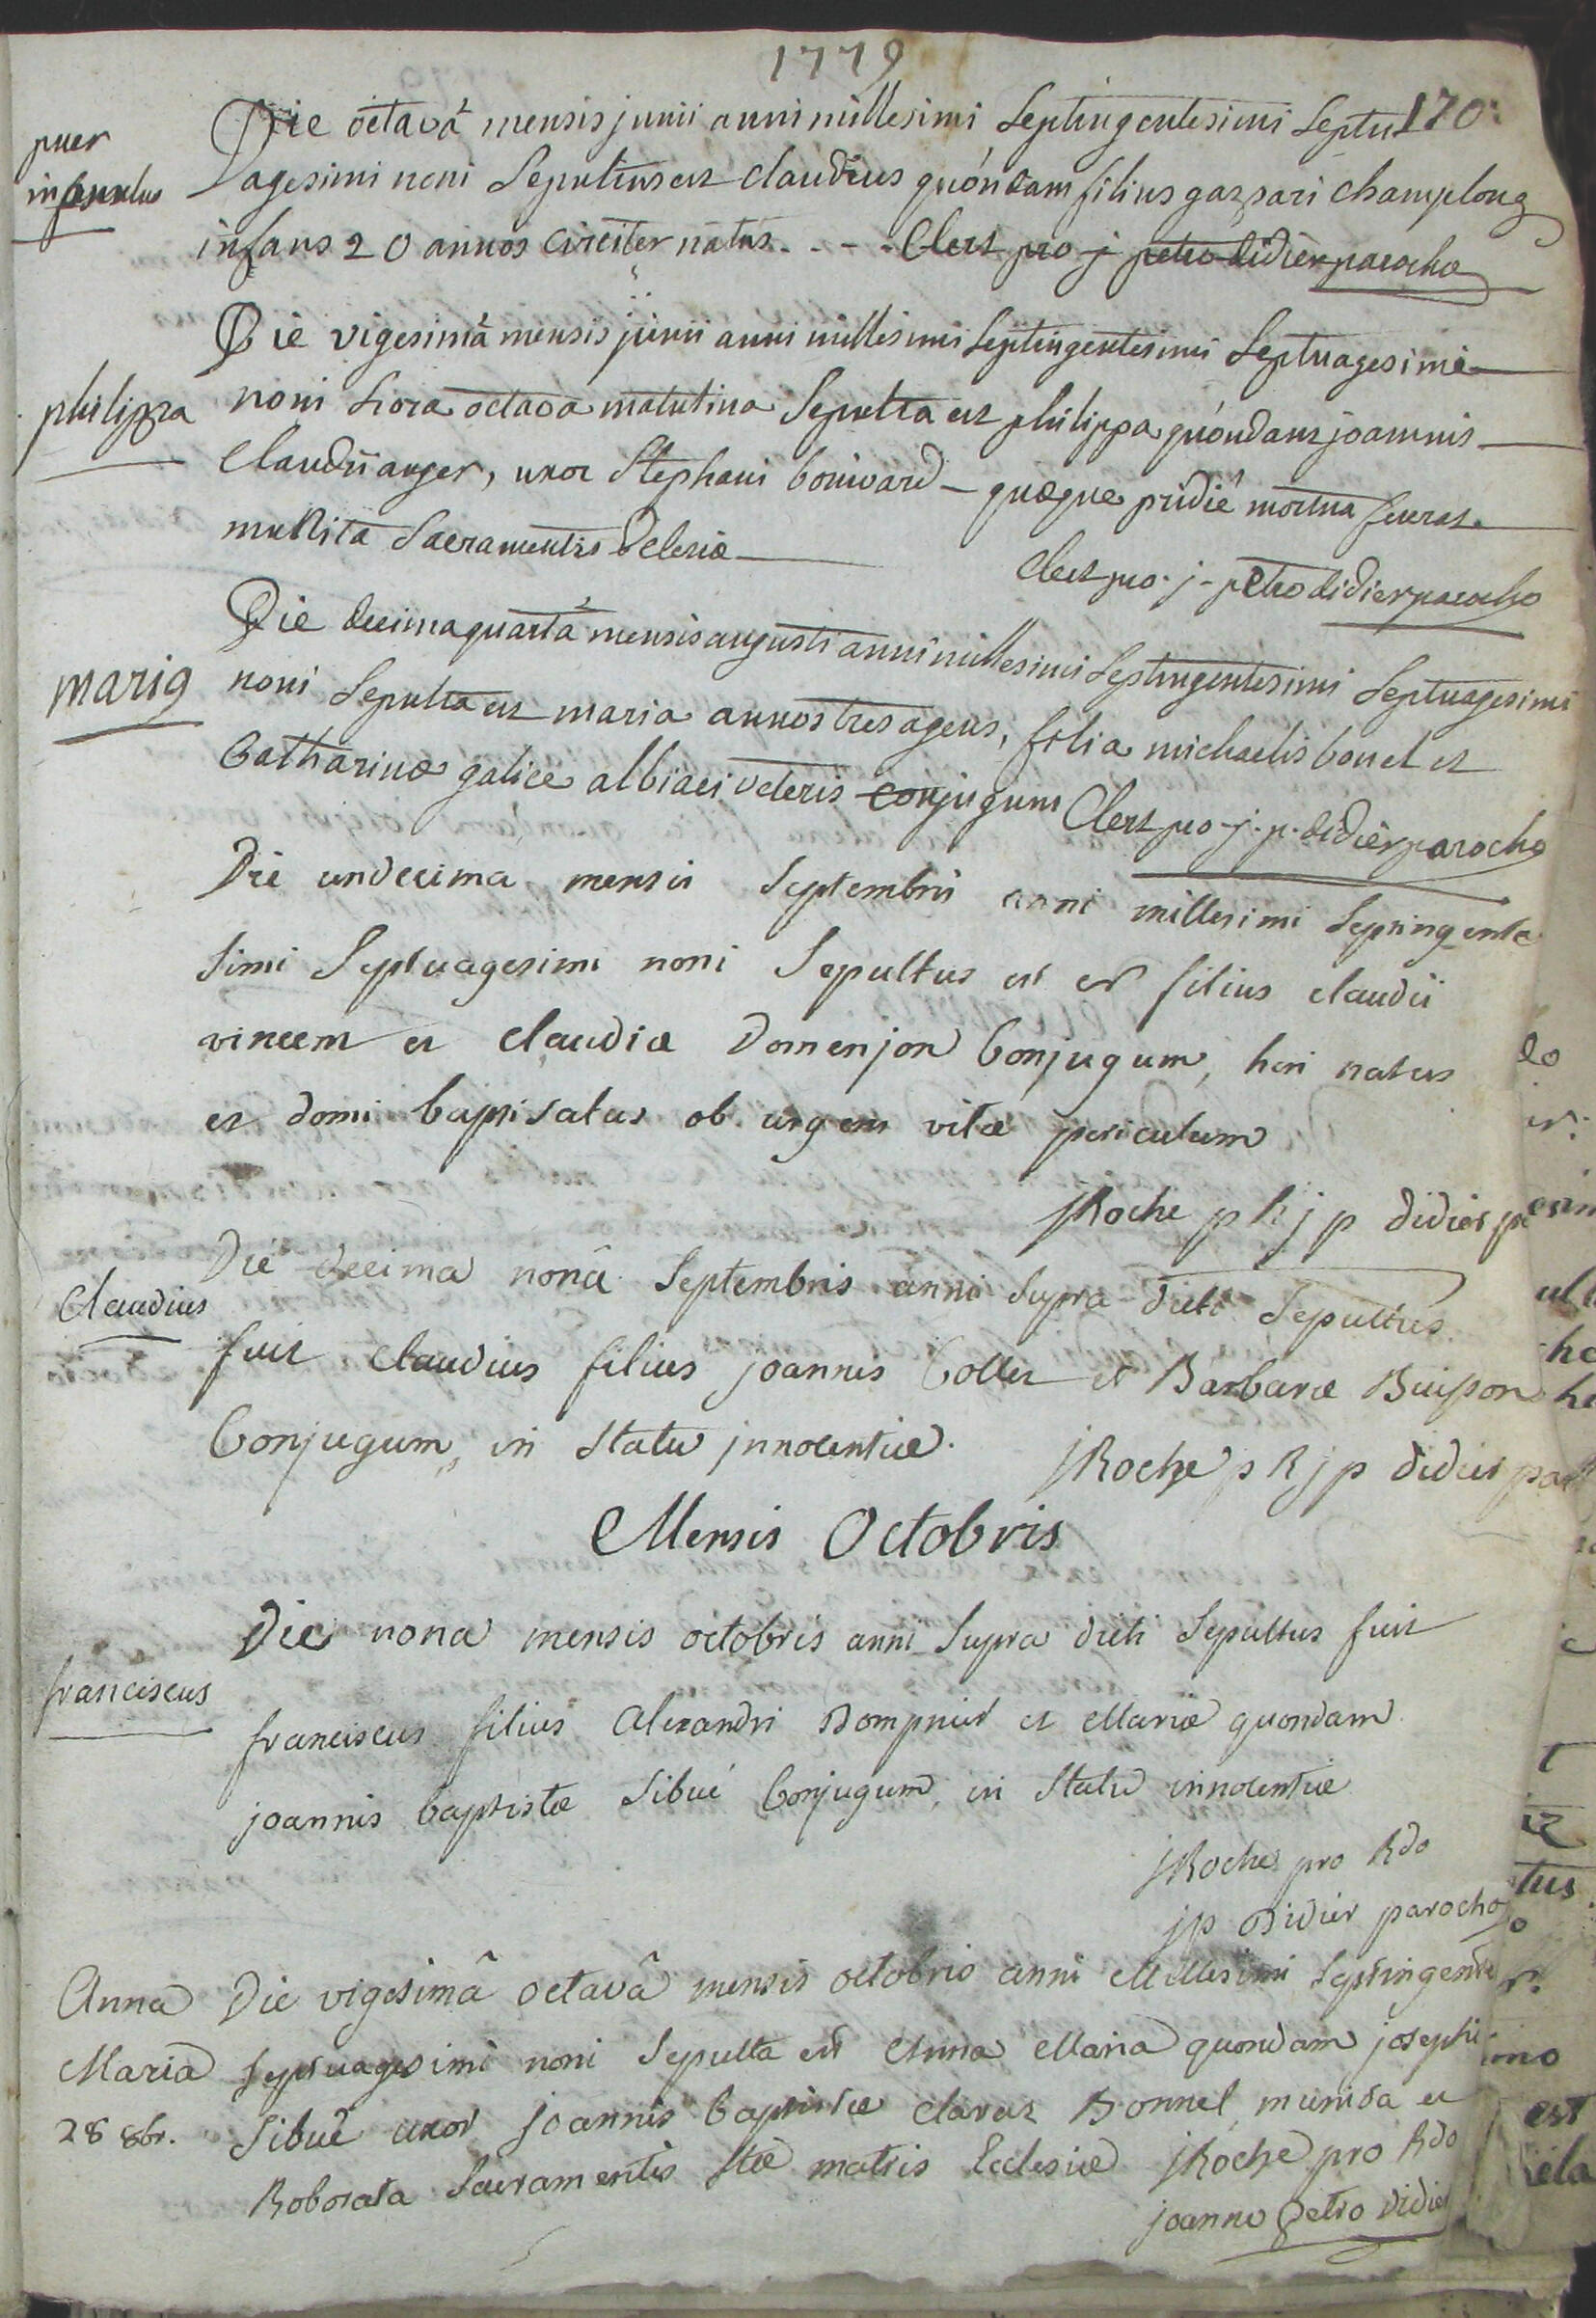 1779
170
Die octavâ mensis junii anni millesimi Septingentesimi Septu
puer
infantulus
agesimi noni Sepultus est claudius quóndam filius gaspari champlong
infans 20 annos circiter natus. - - - Clert pro j petro didier parocho
Die vigesimâ mensis junii anni millesimi Septingentesimi Septuagesimi
philippa
noni hora octava matutina Sepulta est philippa quóndam joannis
Claudii auger, uxor Stephani boniward – quæque pridiè mortua fuerat.
munita Sacramentis Eclesiæ
Clert pro. j. petro didier parocho
Die decimaquartâ mensis augusti anni millesimi Septingentesimi Septuagesimi
maria
noni Sepulta est maria annos tres agens, filia michaelis bonel et
Catharinæ galice albiaci veteris conjugum Clert pro j. p. didier parocho
Die undecima mensis Septembris anni millesimi Septingente
simi Septuagesimi noni Sepultus est filius claudii
vincem et Claudiæ Domenjon Conjugum, heri natus
et domi baptisatus ob urgens vitæ periculum
jRoche p R j p didier
Die decima nonâ Septembris anni Supra dicti Sepultus
Claudius
fuit Claudius filius joannis Collet et Barbaræ Buisson
Conjugum, in Statu jnnocentiæ.
jRoche p R j p didier
Mensis Octobris
Die nona mensis octobris anni Supra dicti Sepultus fuit
franciscus
franciscus filius Alexandri Dompnier et Mariæ quondam
joannis baptistæ Sibué Conjugum, in Statu innocentiæ
jRoche pro Rdo
jp Didier parocho
Anna Die vigesimâ octavâ mensis octobris anni Millesimi Septingente
Maria Septuagesimi noni Sepulta est Anna Maria quondam josephi
28 8br. Sibué uxor joannis baptistæ claraz Bonnel munita et
Roborata Sacramentis Stæ matris Ecclesiæ jRoche pro Rdo
joanne petro Didier